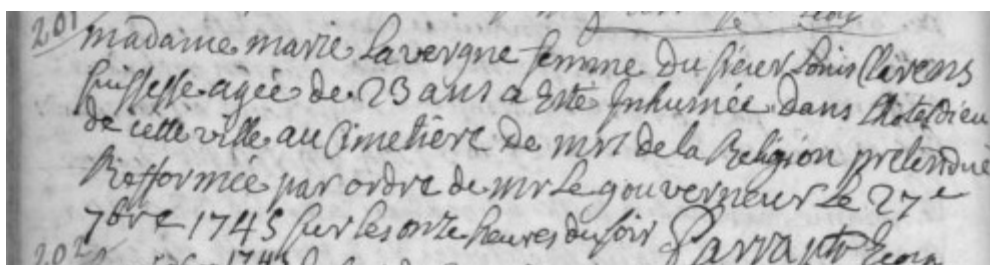 201
madame marie Lavergne femme du sieur Louis Clarens
suissesse agée de 23 ans a Esté Inhumée dans lhoteldieu
de cette ville au Cimetière de mrs de la Religion pretendue
Refformée par ordre de mr le gouverneur le 27e
7bre 1743 sur les onze heures du soir
202
1743